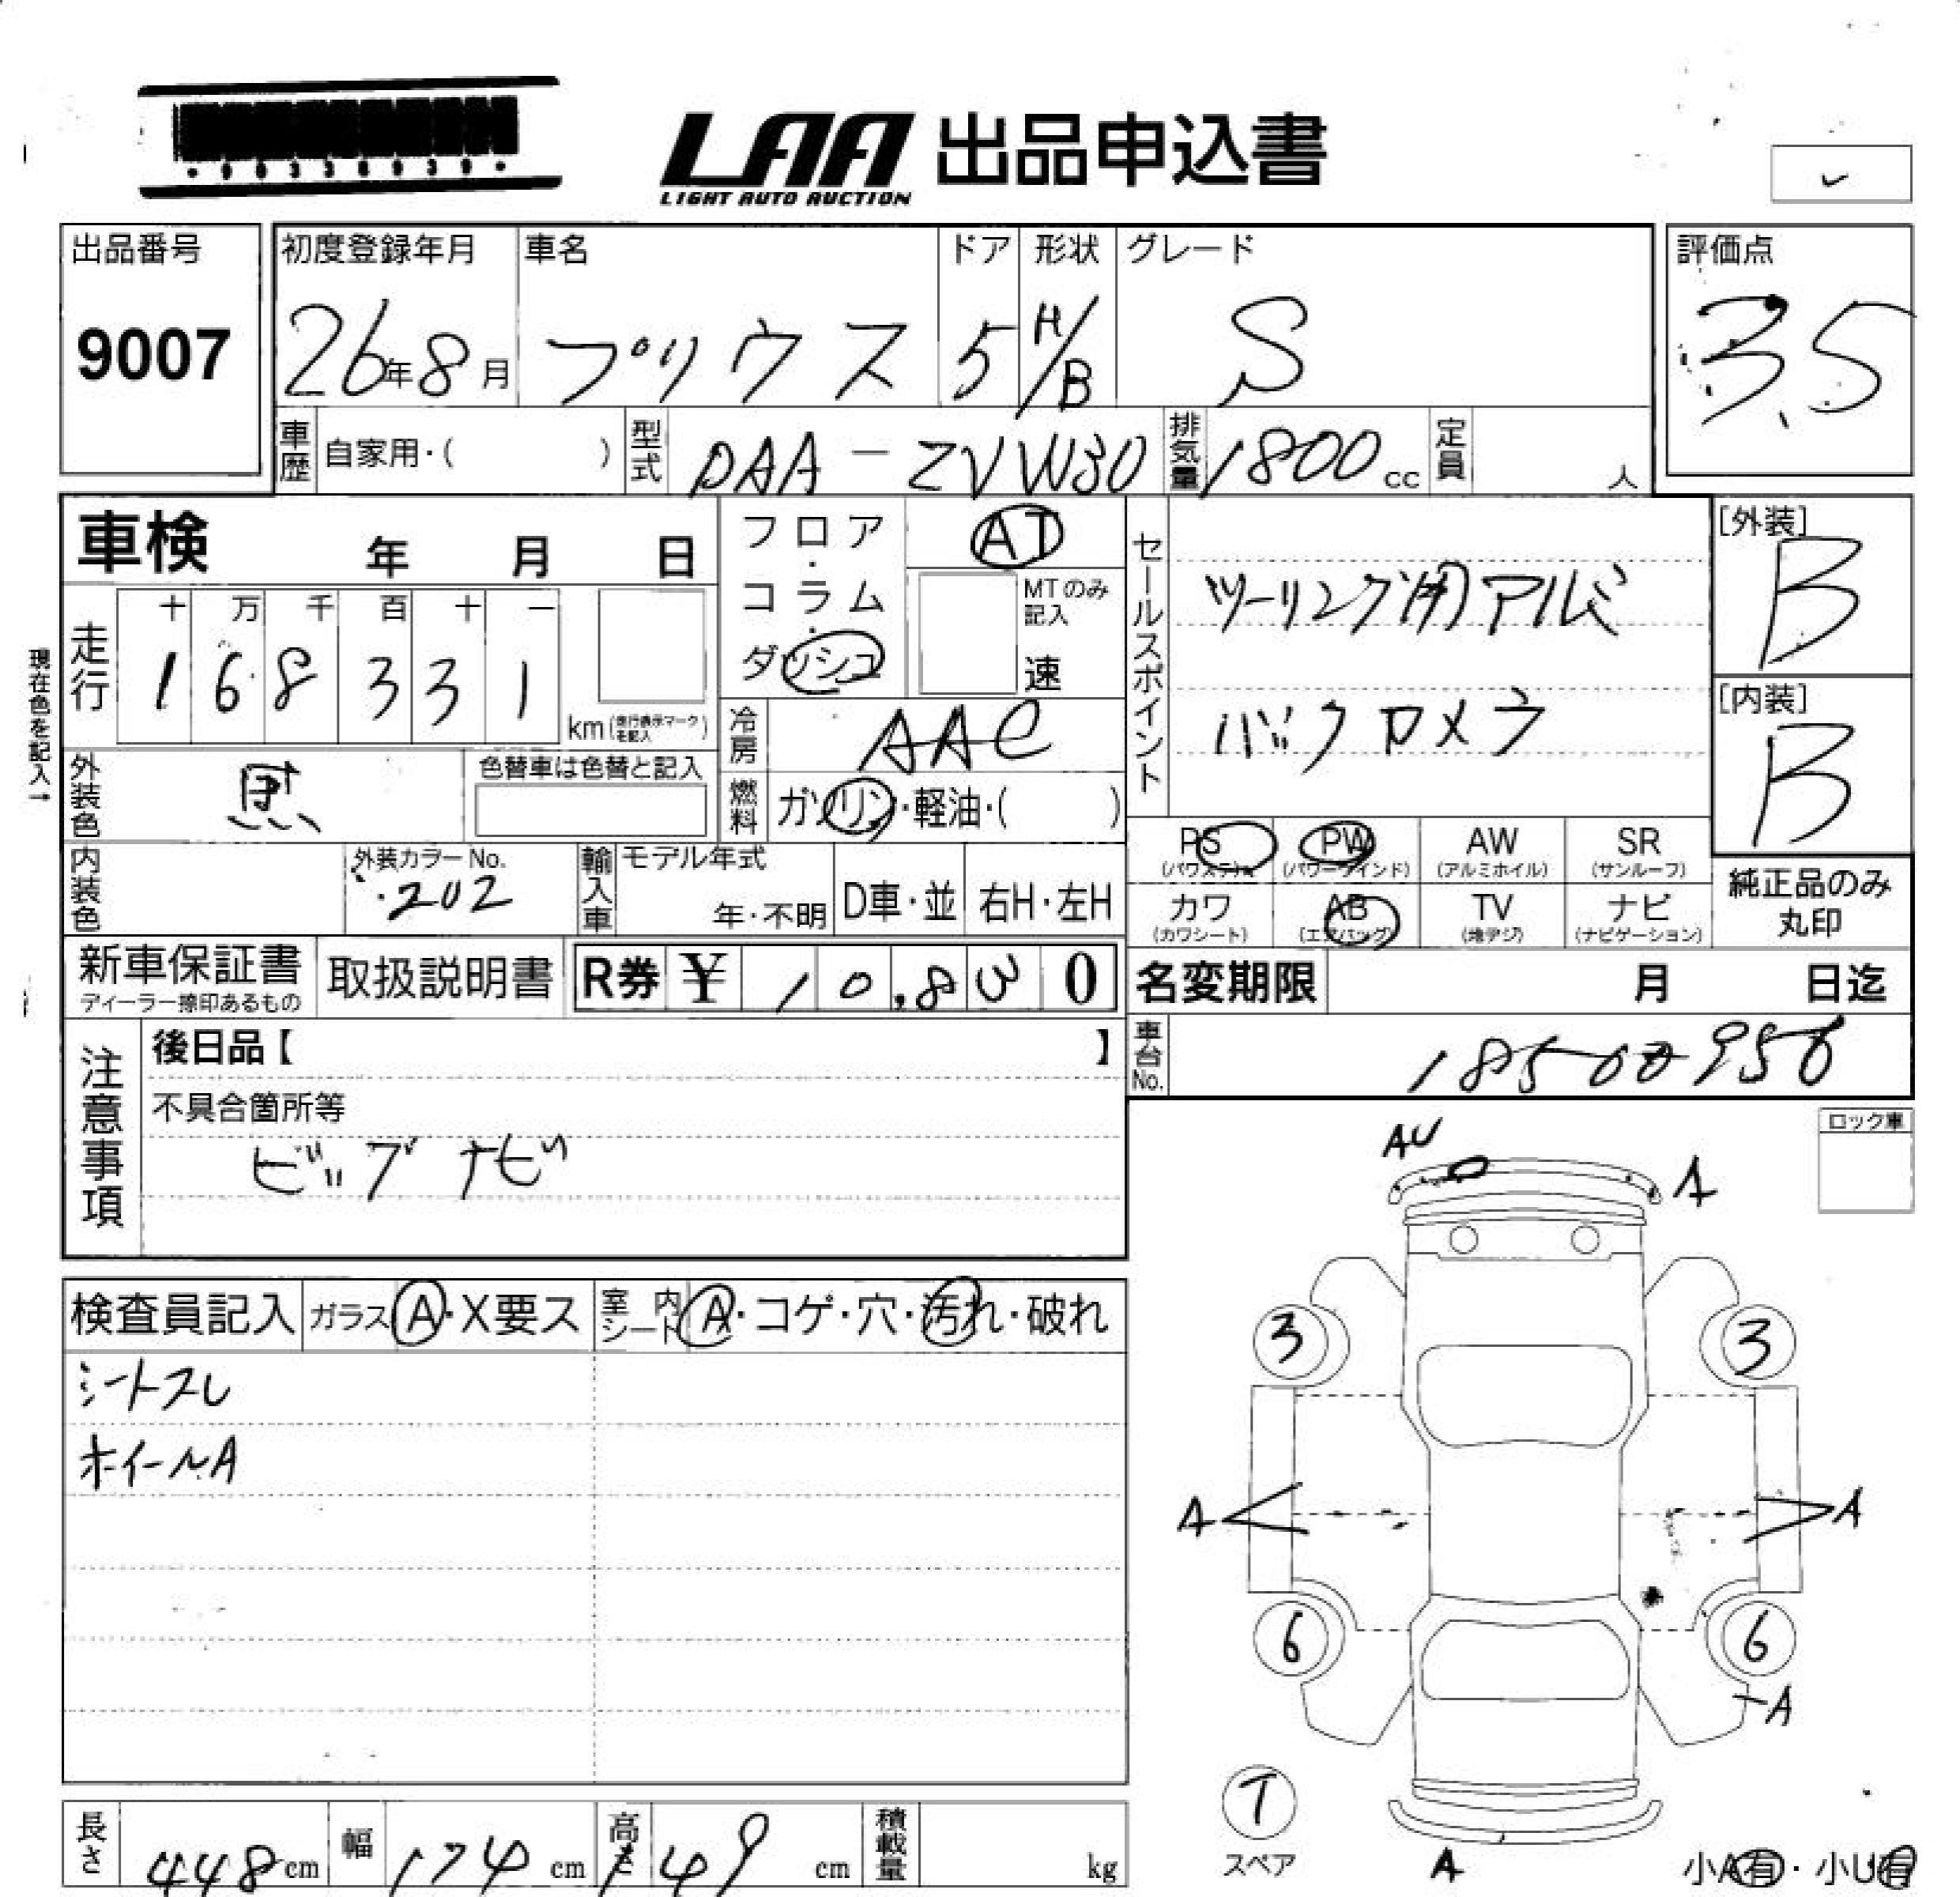 LAA 出品申込書
LIGHT AUTO AUCTION
出品番号
9007
初度登録年月 車名 ドア 形状 グレード
26年8月 プリウス 5 H/B S
評価点
3.5
車歴 自家用・( ) 型式 DAA-ZVW30 排気量 1800cc 定員 人
車検 年 月 日
フロア・コラム・ダッシュ
AT
MTのみ記入
速
セールスポイント
ツーリング用アルミ
バックカメラ
[外装]
B
[内装]
B
現在色を記入→
走行
十 万 千 百 十 一
1 6 8 3 3 1
km(走行表示マークを記入)
冷房 AAC
外装色 黒 色替車は色替と記入
燃料 ガソリン・軽油・( )
PS PW AW SR
(パワステ) (パワーウインド) (アルミホイル) (サンルーフ)
カワ AB TV ナビ
(カワシート) (エアバッグ) (地デジ) (ナビゲーション)
純正品のみ
丸印
内装色 外装カラーNo. 202
輸入車 モデル年式 年・不明 D車・並 右H・左H
新車保証書
ディーラー捺印あるもの
取扱説明書
R券 ¥ 10,830
名変期限 月 日迄
車台No.
注意事項
後日品【 】
不具合箇所等
ナビ
ロック車
AU
A
検査員記入 ガラス A・X要ス 室内シート A・コゲ・穴・汚れ・破れ
シートスレ
ホイールA
3 3
A A
6 6
A
T
スペア
A
小A有・小U有
長さ 448cm 幅 174cm 高さ 149cm 積載量 kg